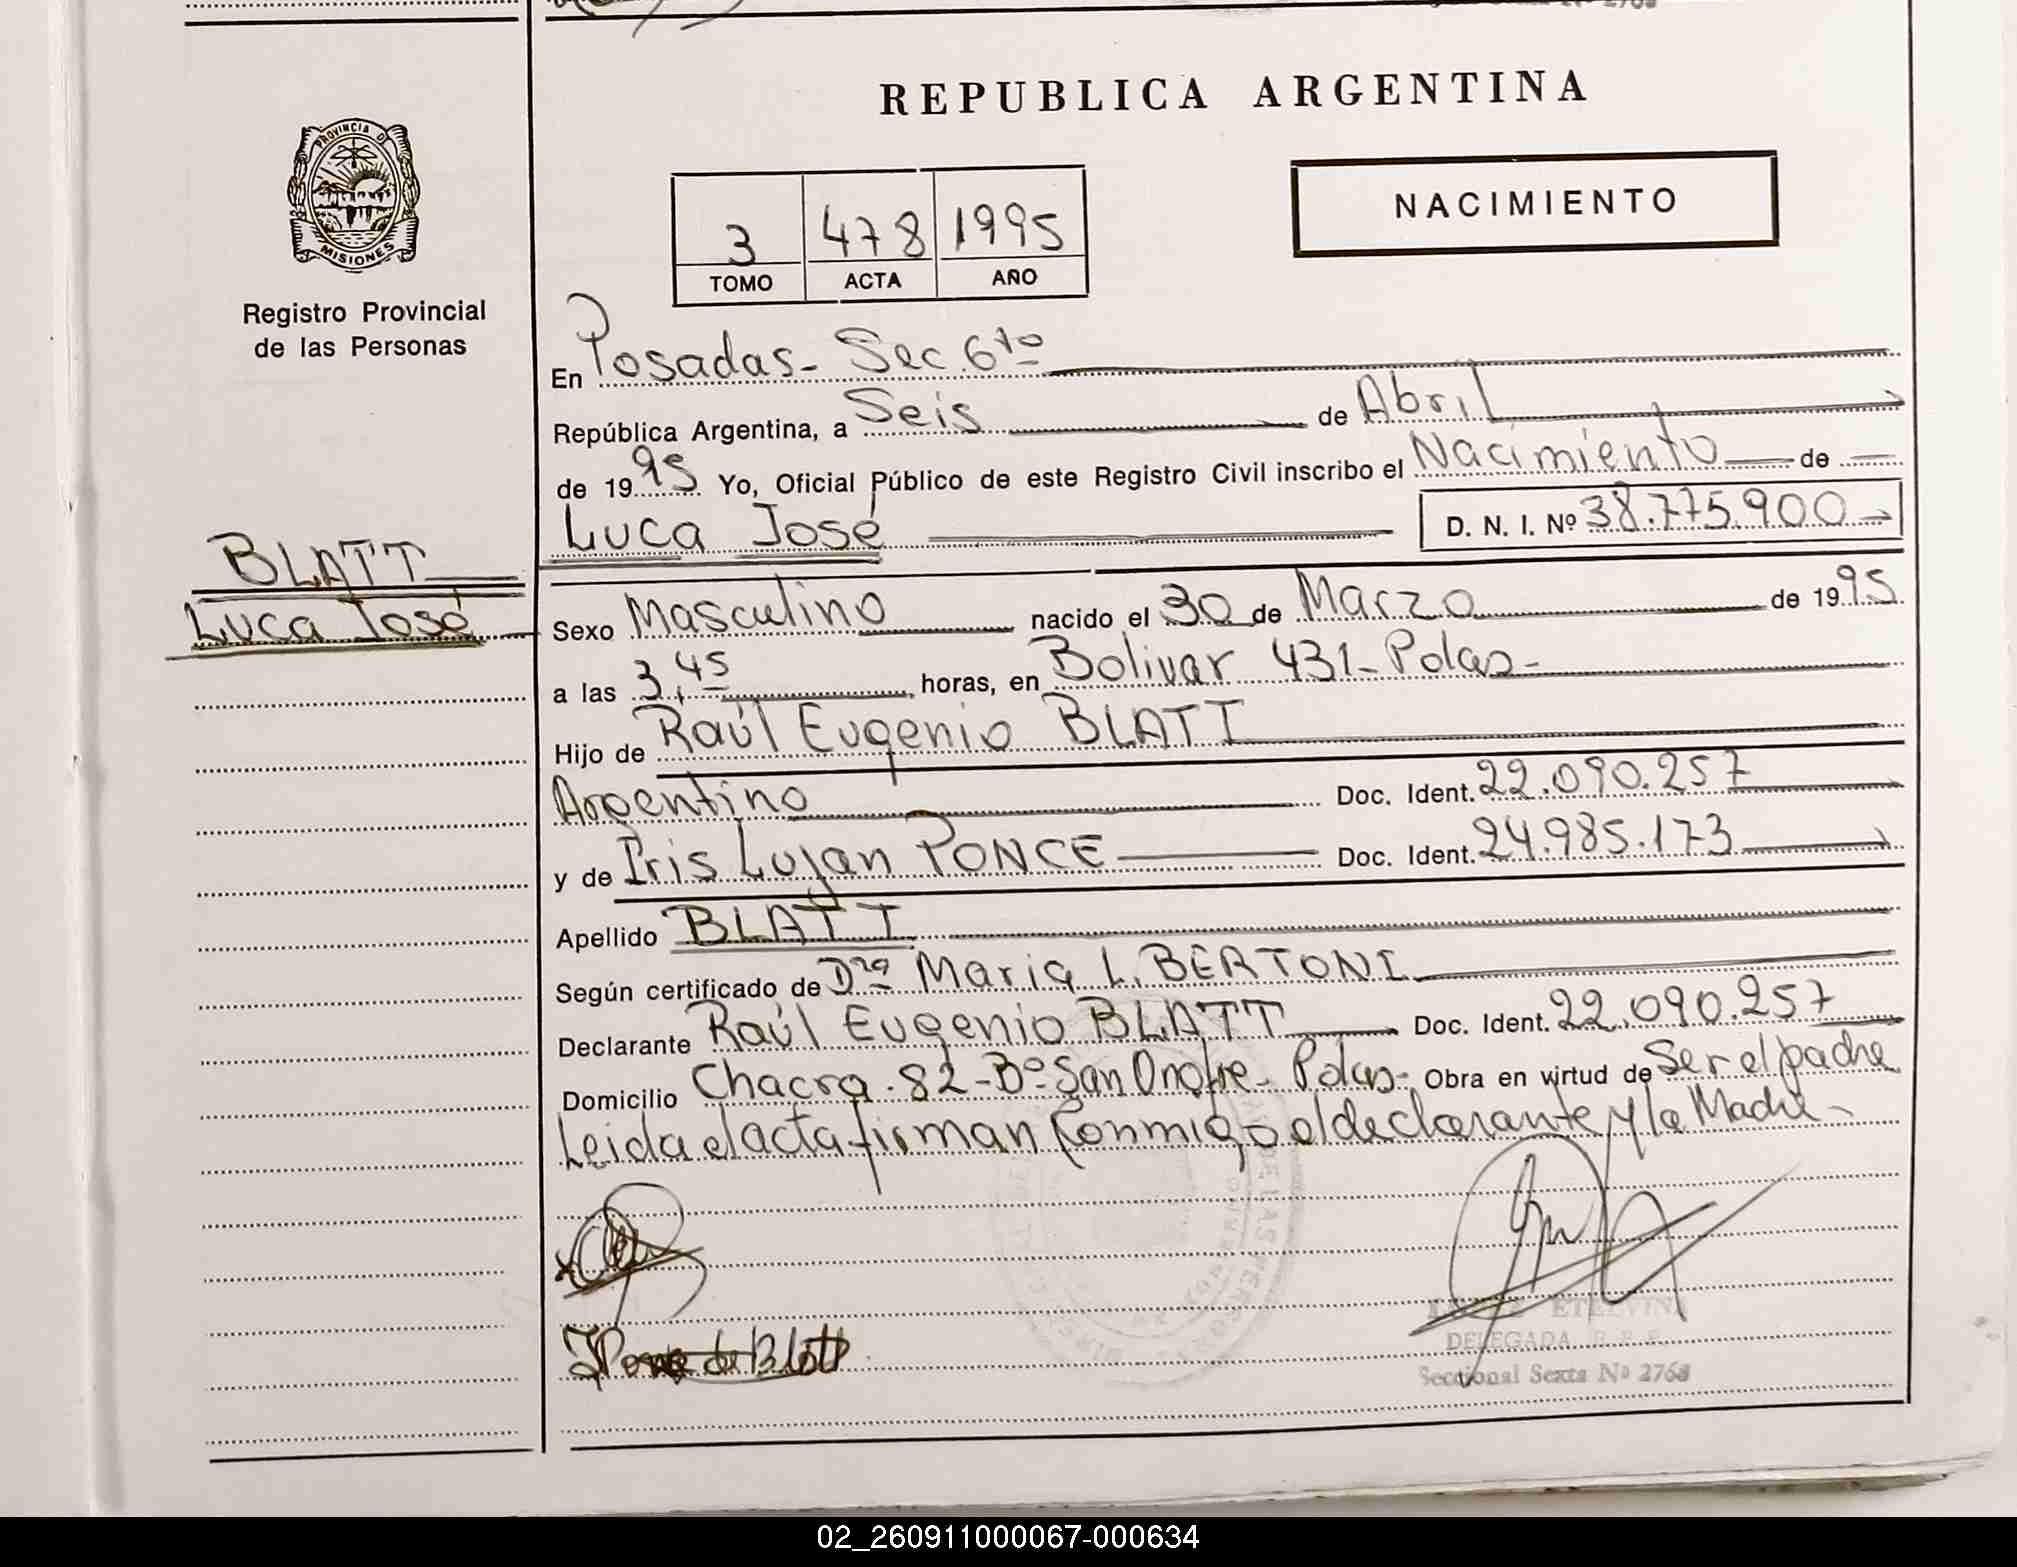 REPUBLICA ARGENTINA
PROVINCIA DE
MISIONES
Registro Provincial
de las Personas
3 478 1995
TOMO ACTA AÑO
NACIMIENTO
En Posadas- Sec. 6to
República Argentina, a Seis de Abril
de 1995 Yo, Oficial Público de este Registro Civil inscribo el Nacimiento de
Luca José D. N. I. Nº 38.775.900
BLATT
Luca José
Sexo Masculino nacido el 30 de Marzo de 1995
a las 3,45 horas, en Bolivar 431- Pdas-
Hijo de Raúl Eugenio BLATT
Argentino Doc. Ident. 22.090.257
y de Iris Lujan PONCE Doc. Ident. 24.985.173
Apellido BLATT
Según certificado de Dra Maria L. BERTONI
Declarante Raúl Eugenio BLATT Doc. Ident. 22.090.257
Domicilio Chacra. 82-Bº San Onofre- Pdas- Obra en virtud de Ser el padre
Leida el acta firman Conmigo el declarante y la Madre-
IPonce de Blatt
ETELVINA
DELEGADA
Seccional Sexta Nº 2768
02_260911000067-000634